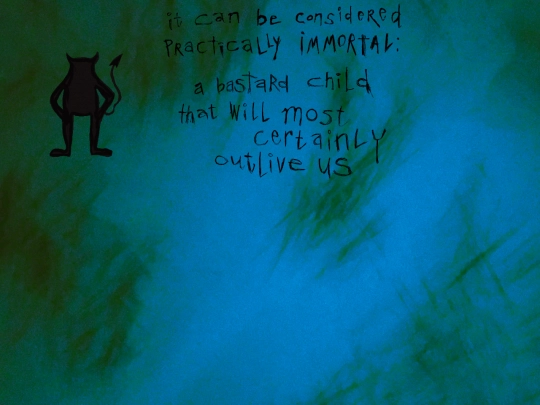 it can be considered
PRACTICALLY IMMORTAL:
a bastard child
that will most
certainly
outlive us